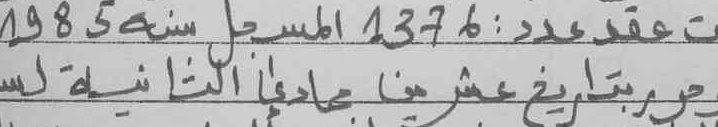 ت عقد عدد: 1376 المسجل سنة 1985
حرر بتاريخ عشر من جمادى الثانية لسـ